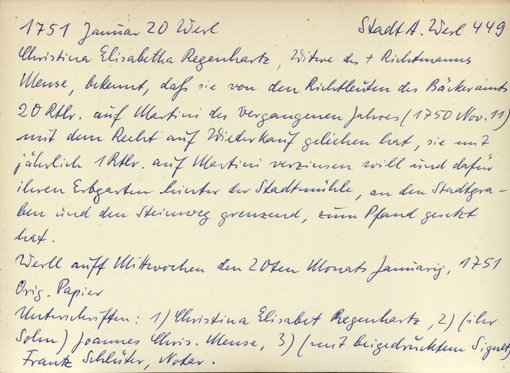 1751 Januar 20 Werl StadtA. Werl 449
Christina Elisabetha Regenhartz, Witwe des + Richtmanns
Mense, bekennt, daß sie von den Richtleuten des Bäckeramts
20 Rtlr. auf Martini des vergangenen Jahres (1750 Nov. 11)
mit dem Recht auf Wiederkauf geliehen hat, sie mit
jährlich 1 Rtlr. auf Martini verzinsen will und dafür
ihren Erbgarten hinter der Stadtmühle, an den Stadtgra-
ben und den Steinweg grenzend, zum Pfand gesetzt
hat.
Werll auff Mittwochen den 20ten Monats Januarij, 1751
Orig. Papier
Unterschriften: 1) Christina Elisabet Regenhartz, 2) (ihr
Sohn) Joannes Chris. Mense, 3) (mit beigedrücktem Signet)
Frantz Schlüter, Notar.